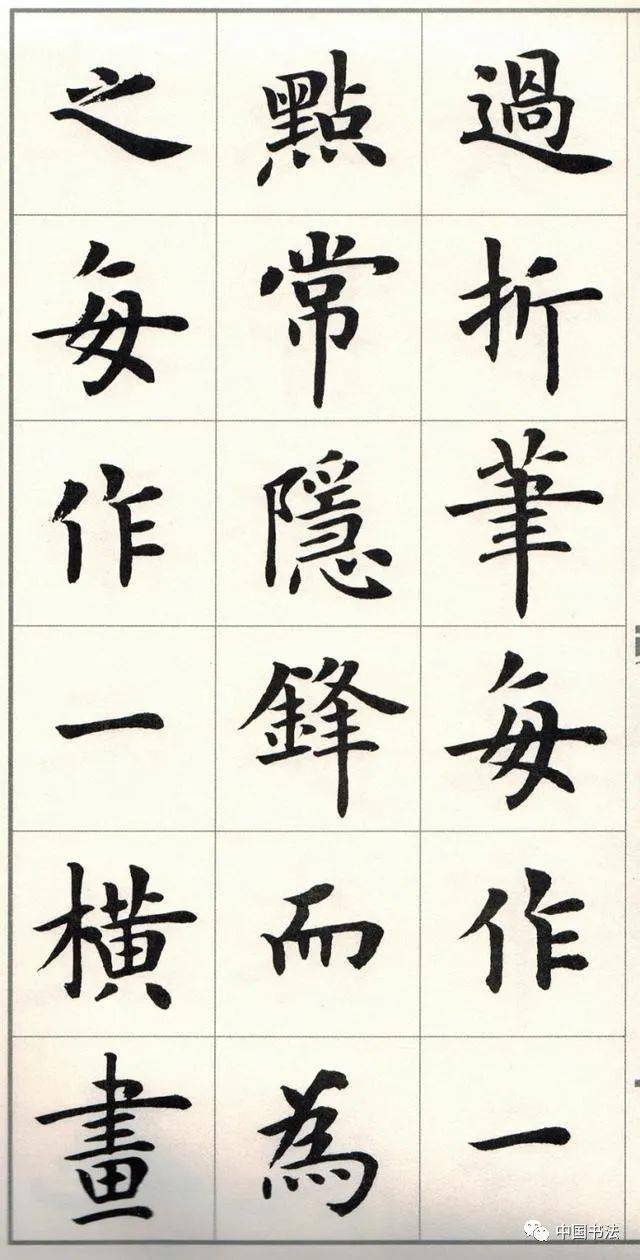 過折筆每作一
點常隱鋒而為
之每作一橫畫
中国书法